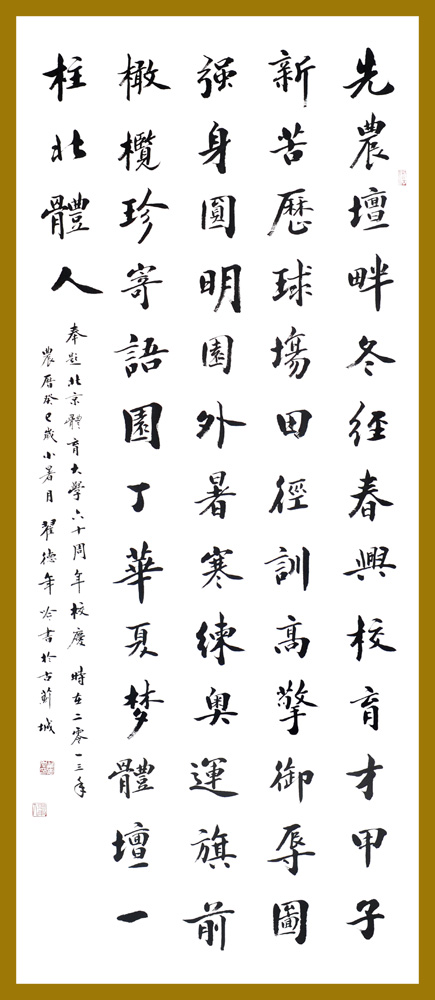 先農壇畔冬經春興校育才甲子
新苦歷球塲田徑訓高擎御辱圖
强身圓明園外暑寒練奥運旗前
橄欖珍寄語園丁華夏梦體壇一
柱北體人
奉題北京體育大學六十周年校慶 時在二零一三年
農曆癸巳歲小暑月 翟德年吟書於古薊城